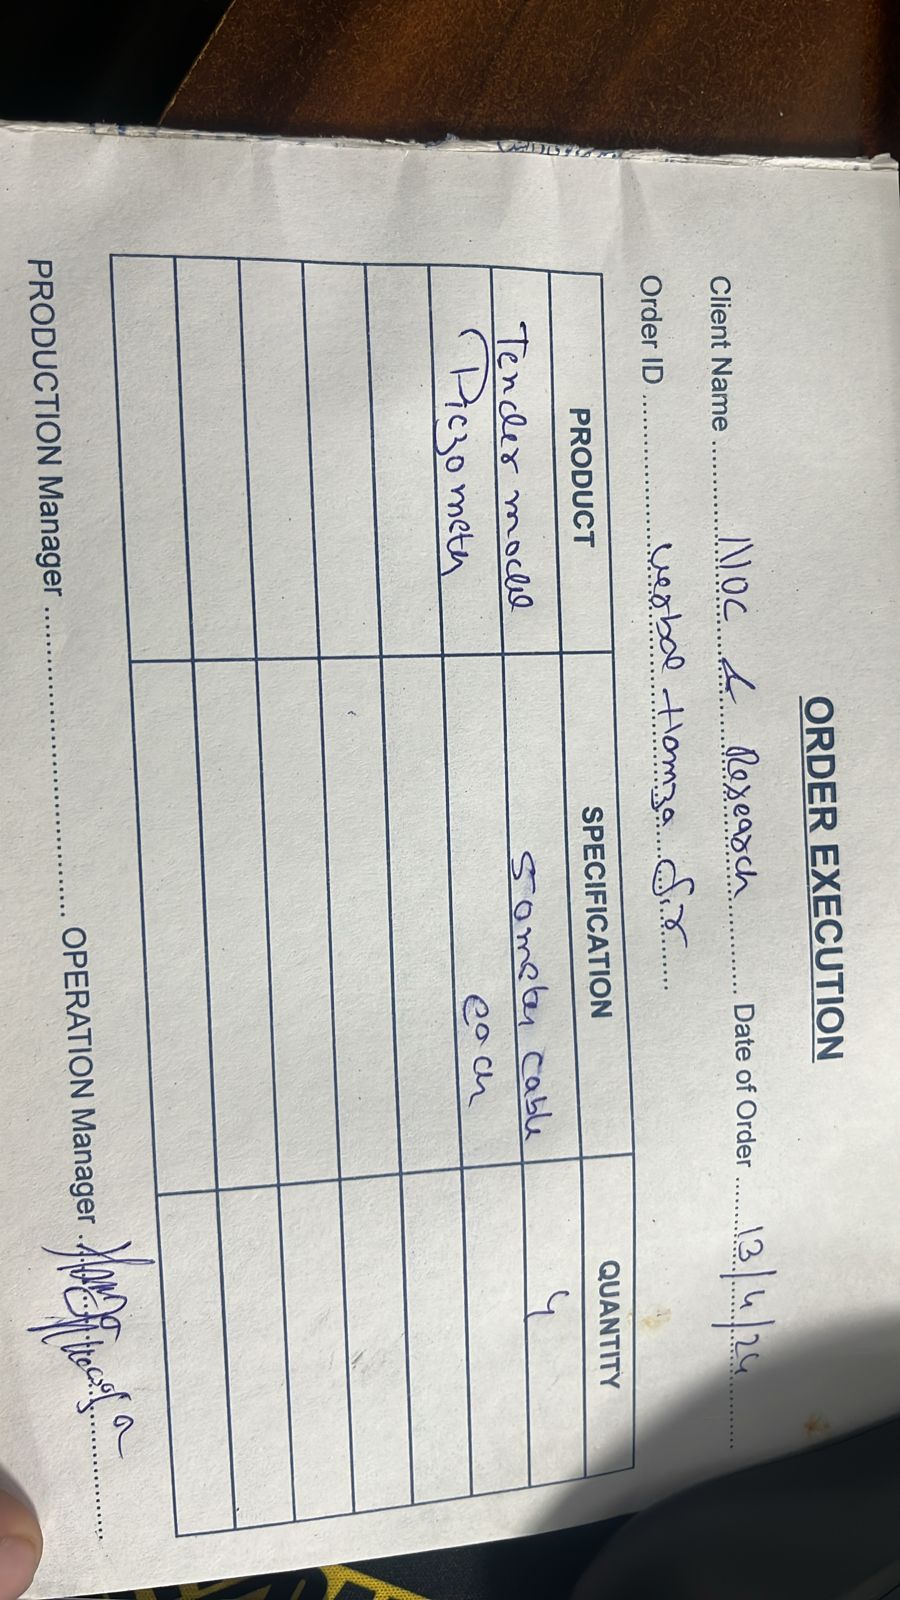 ORDER EXECUTION
Client Name ........ NOC & Research ........ Date of Order ........ 13/4/24 ........
Order ID ........ verbal Hamza Sir ........
PRODUCT SPECIFICATION QUANTITY
Tender model 50 meter cable 4
Piezometer each
PRODUCTION Manager ........ OPERATION Manager ........